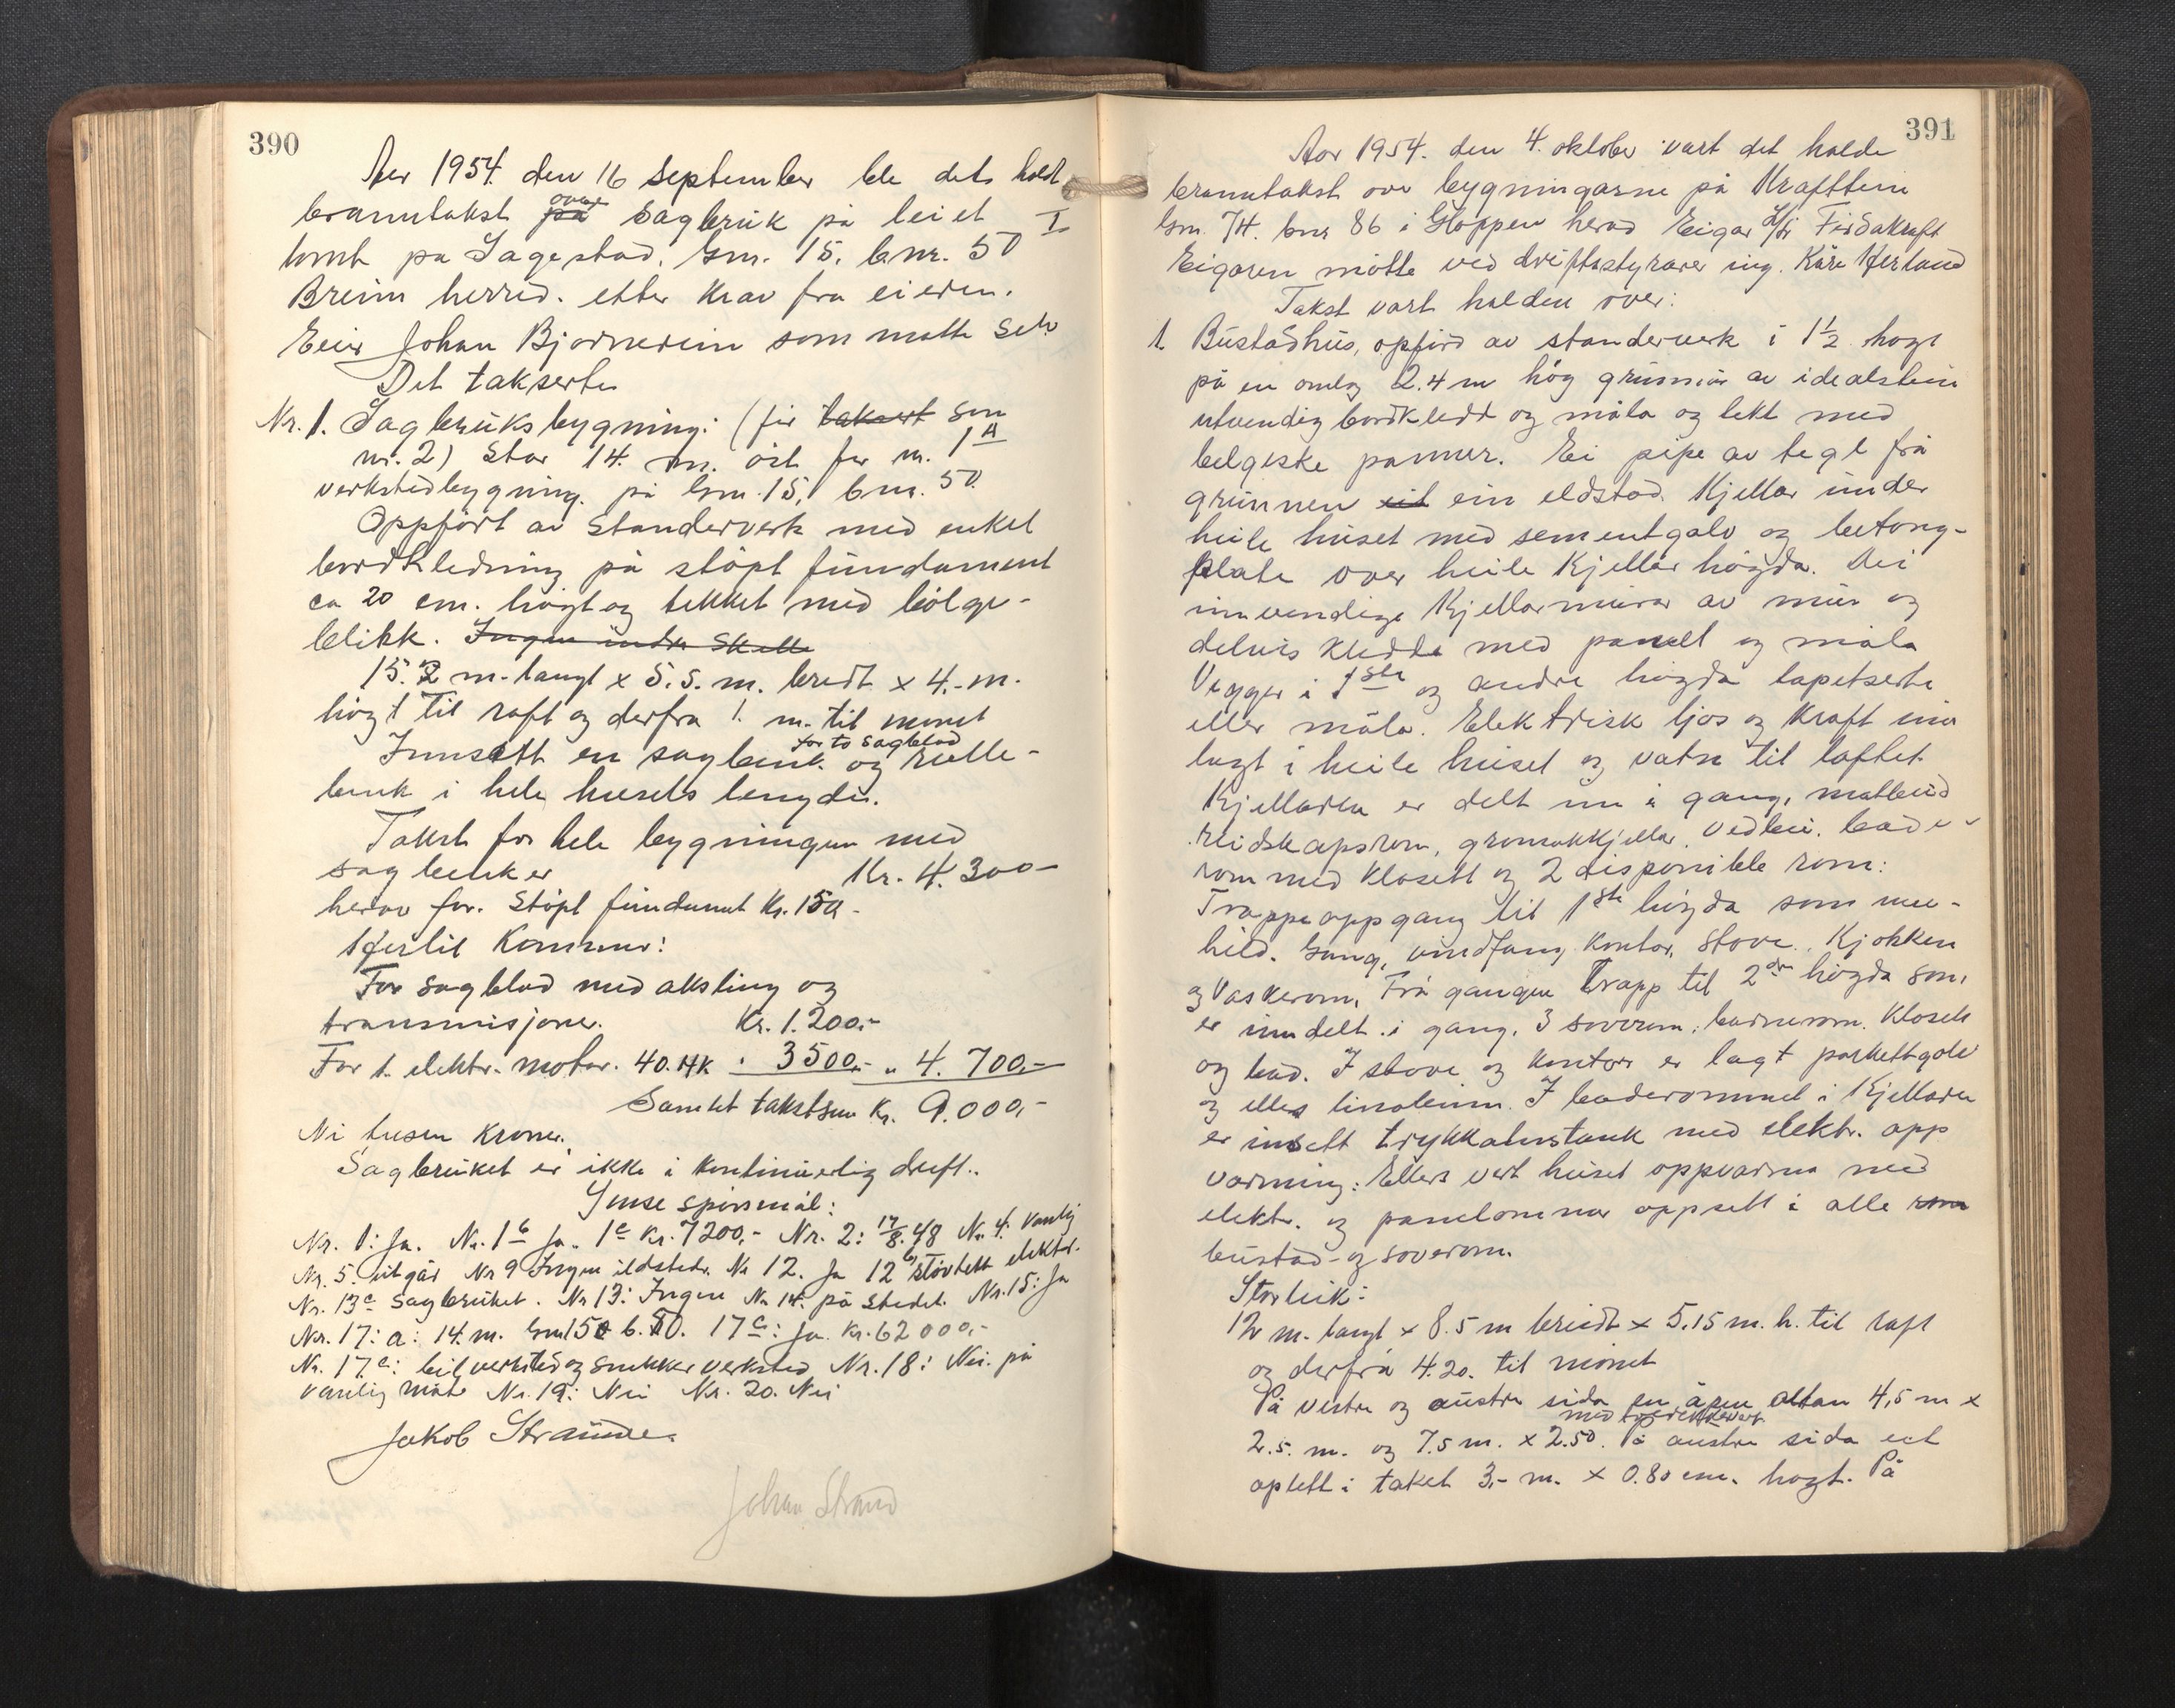 390
Aar 1954. den 16 september ble det holdt
branntakst på over sagbruk på leiet I
tomt på Sagestad. Gnr. 15. bnr. 50
Breim herred. etter krav fra eieren.
Eier Johan Bjørnereim som møtte selv
Det takserte
Nr. 1. Sagbruksbygning: (før taksert som
nr. 2) Står 14. m. öst for nr. 1 A
verkstedbygning. på Gnr. 15, bnr. 50.
Oppført av standerverk med enkel
bordkledning på støpt fundament
ca 20 cm. högt og tekket med bölge-
blikk. Ingen indre Skille
15.2 m. langt x 5.5. m. bredt x 4.- m.
högt til raft og derfra 1. m. til mønet
Innsatt en sagbenk for to sagblad og rulle-
benk i hele husets lengde.
Takst for hele bygningen med
sagbenker Kr. 4.300-
herav for. Støpt fundament Kr. 150.-
tferlit Kommer:
For sagblad med aksling og
transmisjoner. Kr. 1.200,-
For 1. elektr. motor. 40. HK. " 3500,- " 4.700,-
Samlet takstsum Kr. 9.000,-
Ni tusen kroner.
Sagbruket er ikke i kontinuerlig drift.
Ymse spörsmål:
Nr. 1: Ja. Nr. 1 b Ja. 1 c Kr. 7200,- Nr. 2: 17/8. 48 Nr. 4. Vanlig
Nr. 5. utgår Nr 9 Ingen ildsteder Nr 12. Ja 12 b, støvtett elektr.
Nr. 13 c sagbruket. Nr 13: Ingen Nr 14. på stedet. Nr. 15: Ja
Nr. 17: a: 14. m. Gnr 15 b. 50. 17 c: Ja. Kr. 62000,-
Nr. 17 e: bilverksted og snekkerverksted Nr. 18: Nei. på
vanlig måte Nr. 19: Nei Nr. 20. Nei
Jakob Straume.
Johan Strand
391
Aar 1954. den 4. oktober vart det halde
branntakst over bygningarne på
Gnr. 74. bnr 86 i Gloppen herad Eigar Firdakraft
Eigaren møtte ved driftsstyrarer ing. Kåre
Takst vart halden over:
1. Bustadhus, oppførd av standerverk i 1 1/2 høgd
på en omlag 2.4 m høg grunnmur av idealstein
utvendig bordkledd og måla og tekt med
belgiske panner. Ei pipe av tegl frå
grunnen ein eldstad. Kjellar under
heile huset med sementgolv og betong-
plate over heile Kjellarhögda. Dei
innvendige Kjellarmurer av mur og
delvis kledde med panelt og måla
Vegger i 1ste og andre högda tapetserte
eller måla. Elektrisk ljos og kraft inn
lagt i heile huset og vatn til loftet.
Kjellaren er delt inn i gang, matbud
reidskapsrom, grønsakkjellar. vedbu. bade-
rom med klosett og 2 disponible rom:
Trappeoppgang til 1ste högda som inne-
held. Gang, vindfang kontor, stove. Kjøkken
og vaskerom. Frå gangen trapp til 2dre högda som
er inndelt i gang, 3 soverom, barnerom. Klosett
og bad. I stove og kontor er lagt parkettgolv
og elles linoleum. I baderommet i Kjellaren
er innsett trykkvasstank med elektr. opp
varming: Ellers vert huset oppvarma med
elektr. og panelomnar oppsett i alle rom
bustad- og soverom.
Storleik:
12 m. langt x 8.5 m breidt x 5.15 m. h. til raft
og derfrå 4.20. til mønet
På vestre og austre sida en åpen altan 4,5 m x
2.5. m. og 7.5 m. x 2.50. På austre sida eit
oplett i taket 3,- m. x 0.80 cm. högt. På